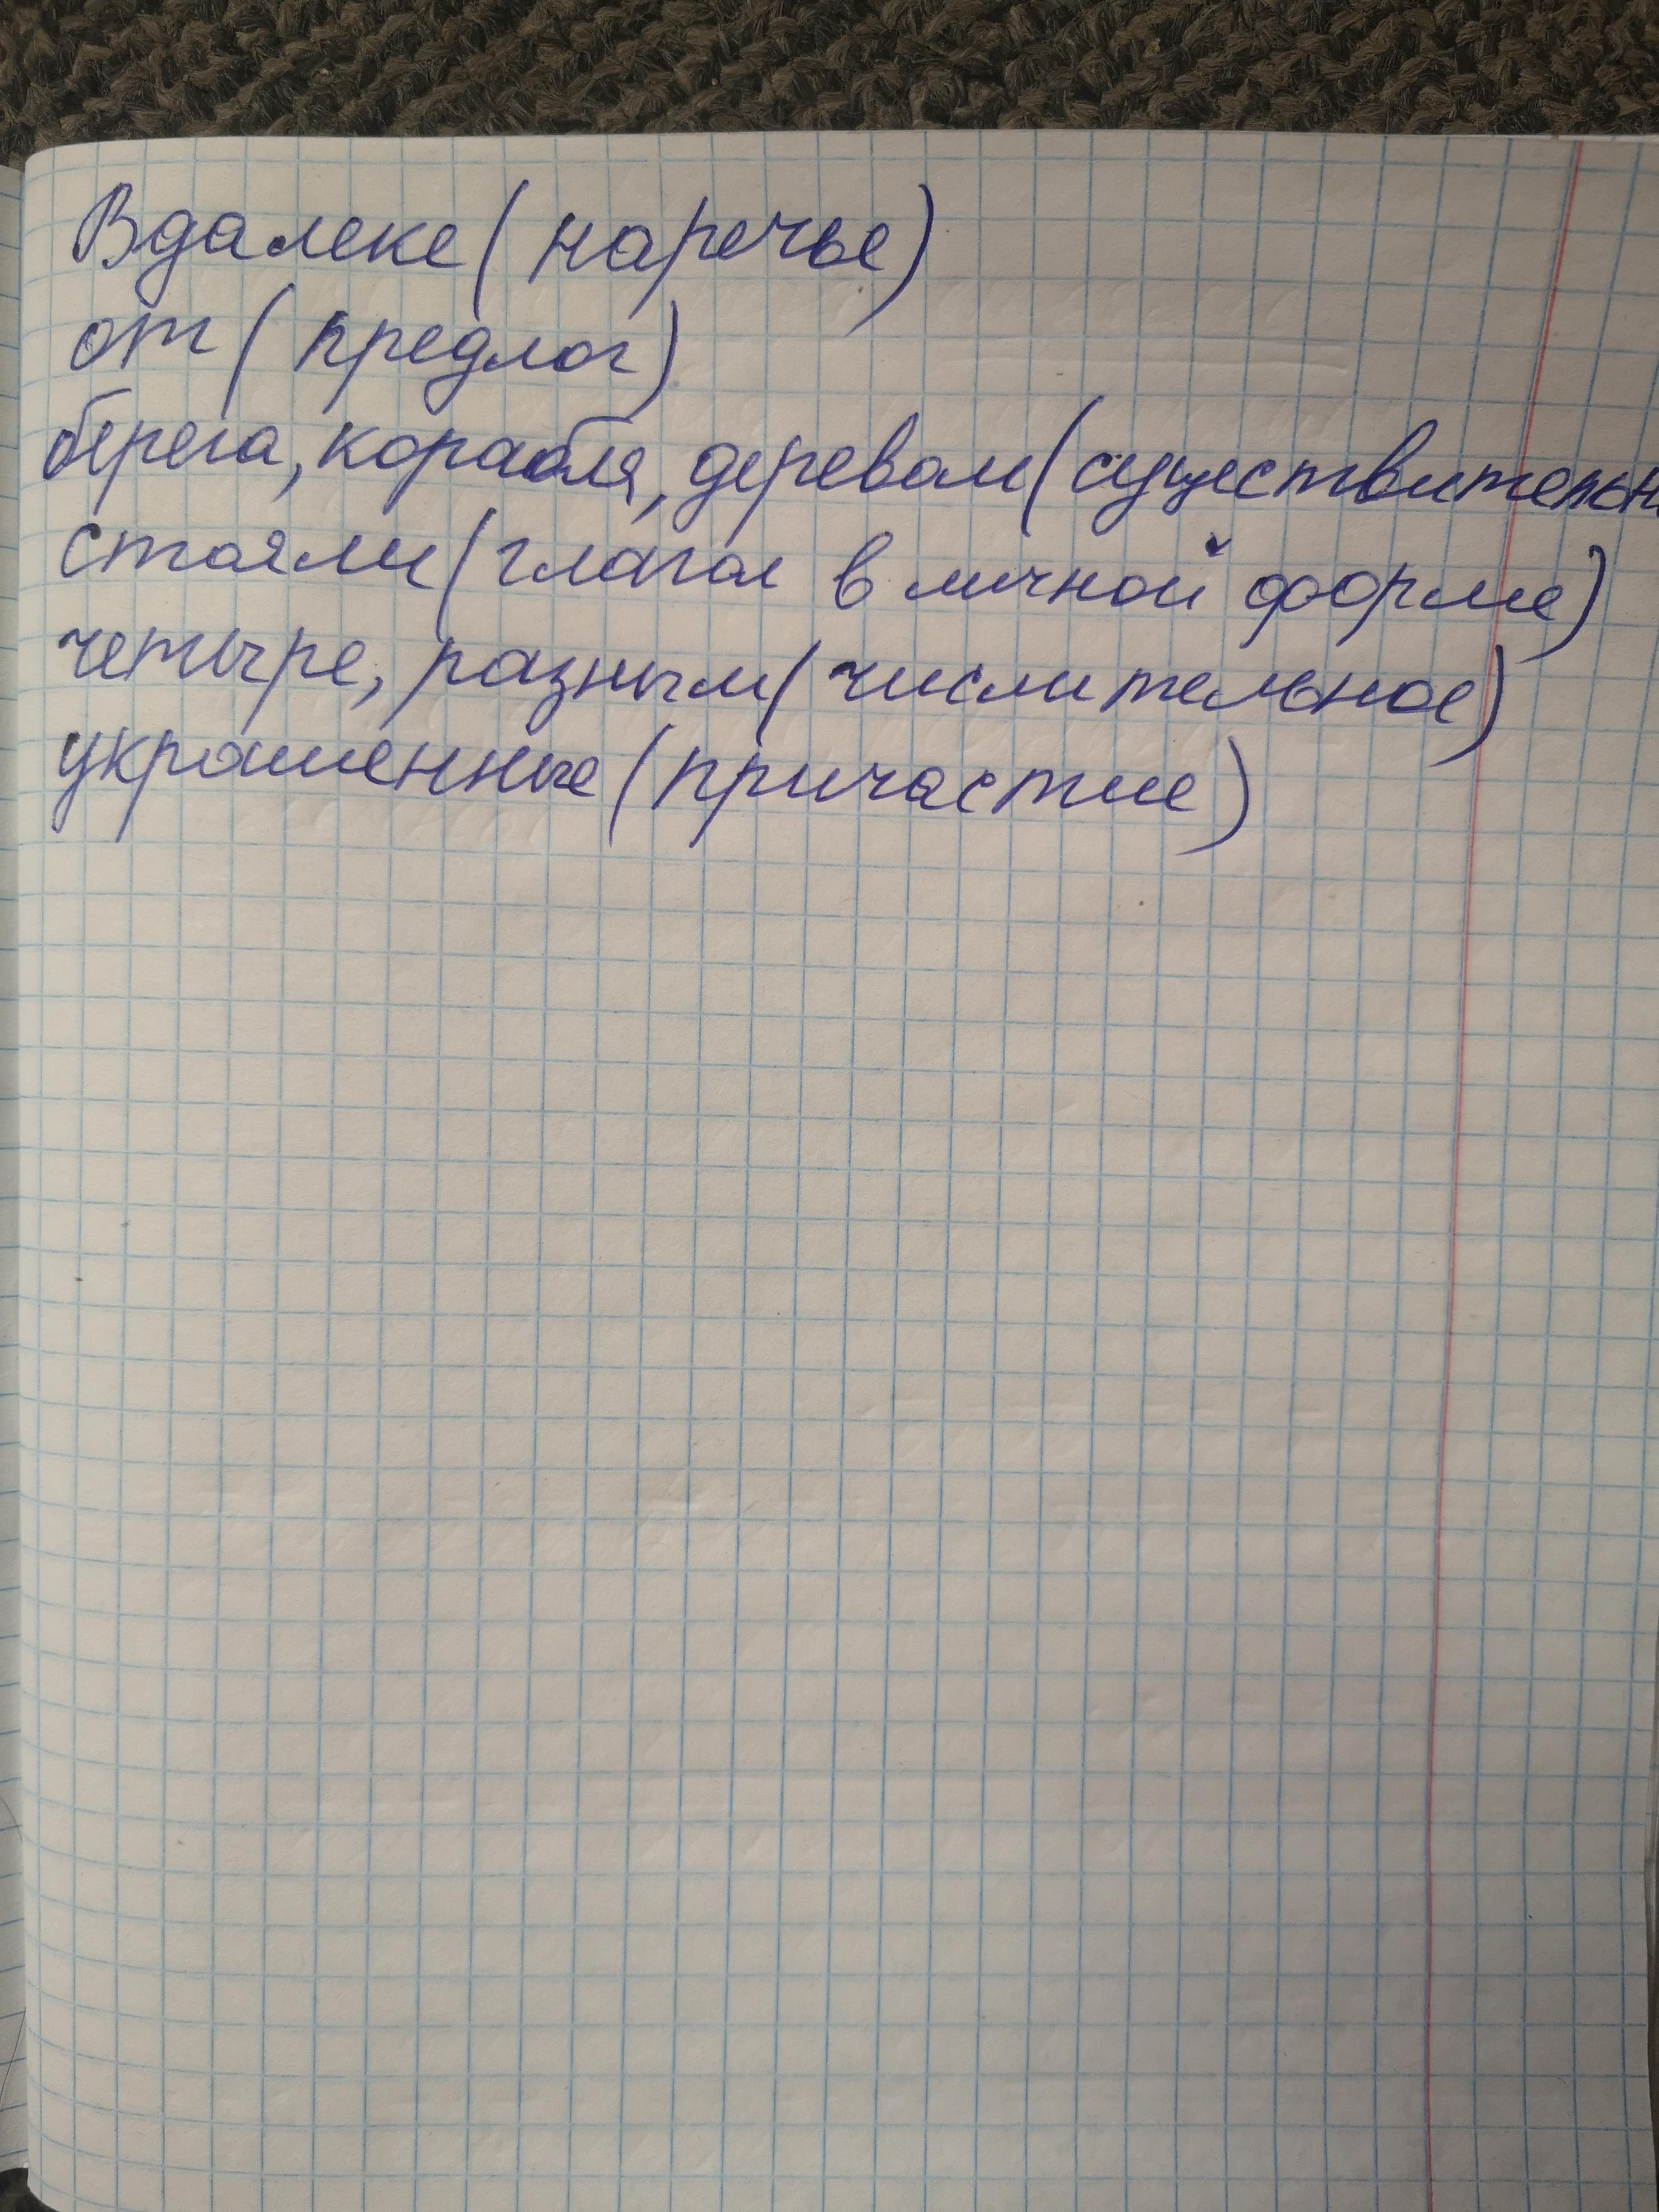 Вдалеке (наречье)
от (предлог)
берега, корабля, деревом (существительн
стояли (глагол в личной форме)
четыре, разным (числительное)
украшенные (причастие)